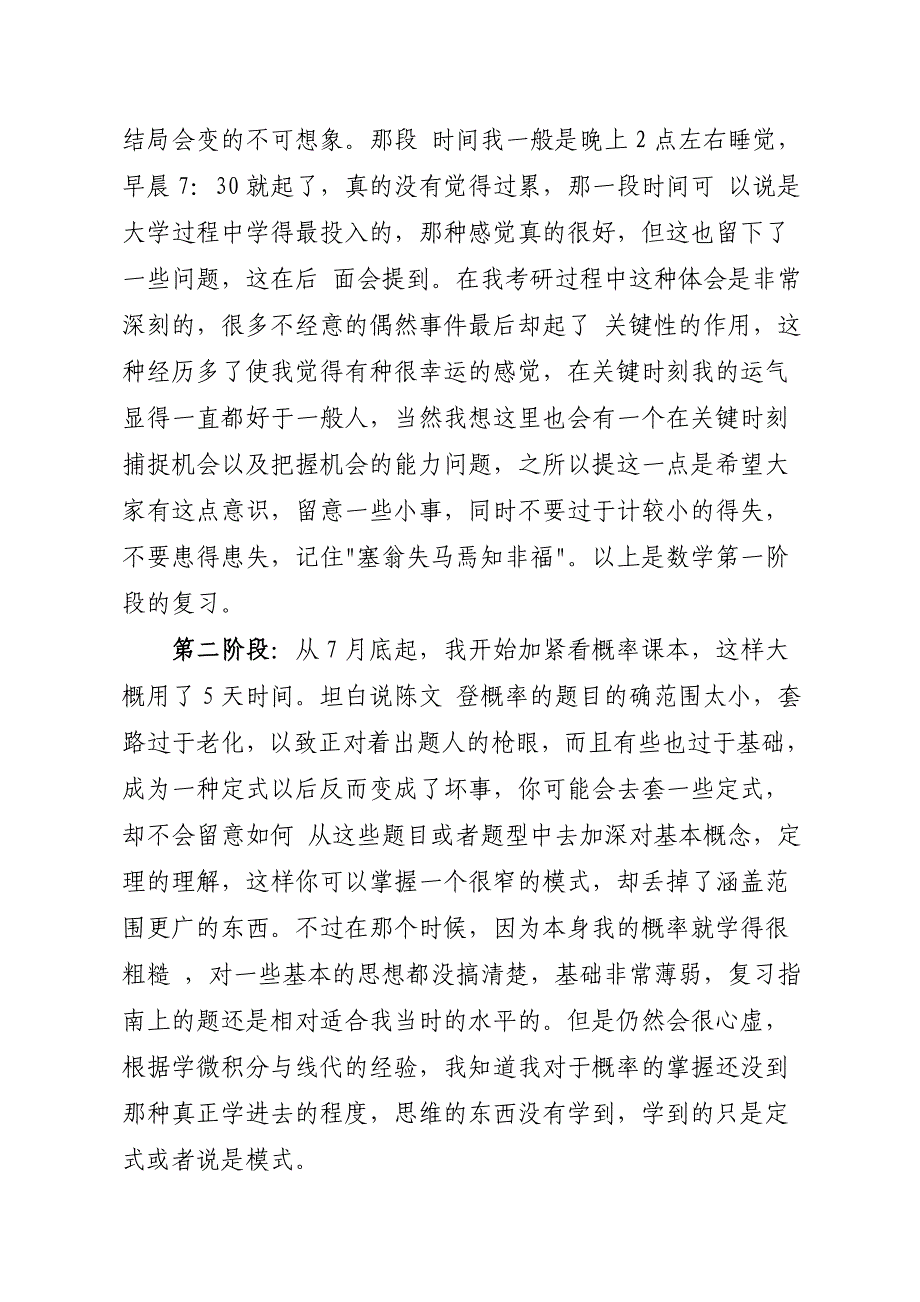 结局会变的不可想象。那段 时间我一般是晚上 2 点左右睡觉，
早晨 7：30 就起了，真的没有觉得过累，那一段时间可 以说是
大学过程中学得最投入的，那种感觉真的很好，但这也留下了
一些问题，这在后 面会提到。在我考研过程中这种体会是非常
深刻的，很多不经意的偶然事件最后却起了 关键性的作用，这
种经历多了使我觉得有种很幸运的感觉，在关键时刻我的运气
显得一直都好于一般人，当然我想这里也会有一个在关键时刻
捕捉机会以及把握机会的能力问题，之所以提这一点是希望大
家有这点意识，留意一些小事，同时不要过于计较小的得失，
不要患得患失，记住"塞翁失马焉知非福"。以上是数学第一阶
段的复习。
第二阶段：从 7 月底起，我开始加紧看概率课本，这样大
概用了 5 天时间。坦白说陈文 登概率的题目的确范围太小，套
路过于老化，以致正对着出题人的枪眼，而且有些也过于基础，
成为一种定式以后反而变成了坏事，你可能会去套一些定式，
却不会留意如何 从这些题目或者题型中去加深对基本概念，定
理的理解，这样你可以掌握一个很窄的模式，却丢掉了涵盖范
围更广的东西。不过在那个时候，因为本身我的概率就学得很
粗糙 ，对一些基本的思想都没搞清楚，基础非常薄弱，复习指
南上的题还是相对适合我当时的水平的。但是仍然会很心虚，
根据学微积分与线代的经验，我知道我对于概率的掌握还没到
那种真正学进去的程度，思维的东西没有学到，学到的只是定
式或者说是模式。